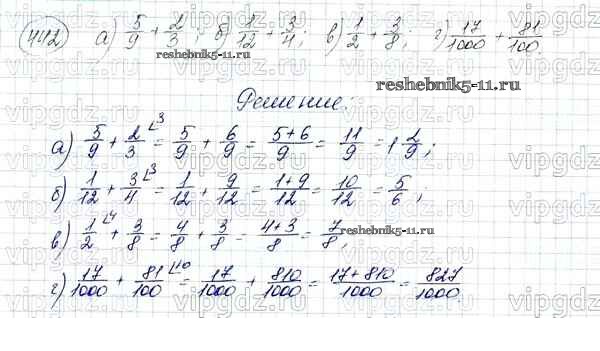 442 а) 5/9 + 2/3; б) 1/12 + 3/4; в) 1/2 + 3/8; г) 17/1000 + 81/100
reshebnik5-11.ru
reshebnik5-11.ru
Решение:
а) 5/9 + 2/3 ⌊3 = 5/9 + 6/9 = (5+6)/9 = 11/9 = 1 2/9;
б) 1/12 + 3/4 ⌊3 = 1/12 + 9/12 = (1+9)/12 = 10/12 = 5/6;
в) 1/2 ⌊4 + 3/8 = 4/8 + 3/8 = (4+3)/8 = 7/8;
reshebnik5-11.ru
г) 17/1000 + 81/100 ⌊10 = 17/1000 + 810/1000 = (17+810)/1000 = 827/1000
vipgdz.ru